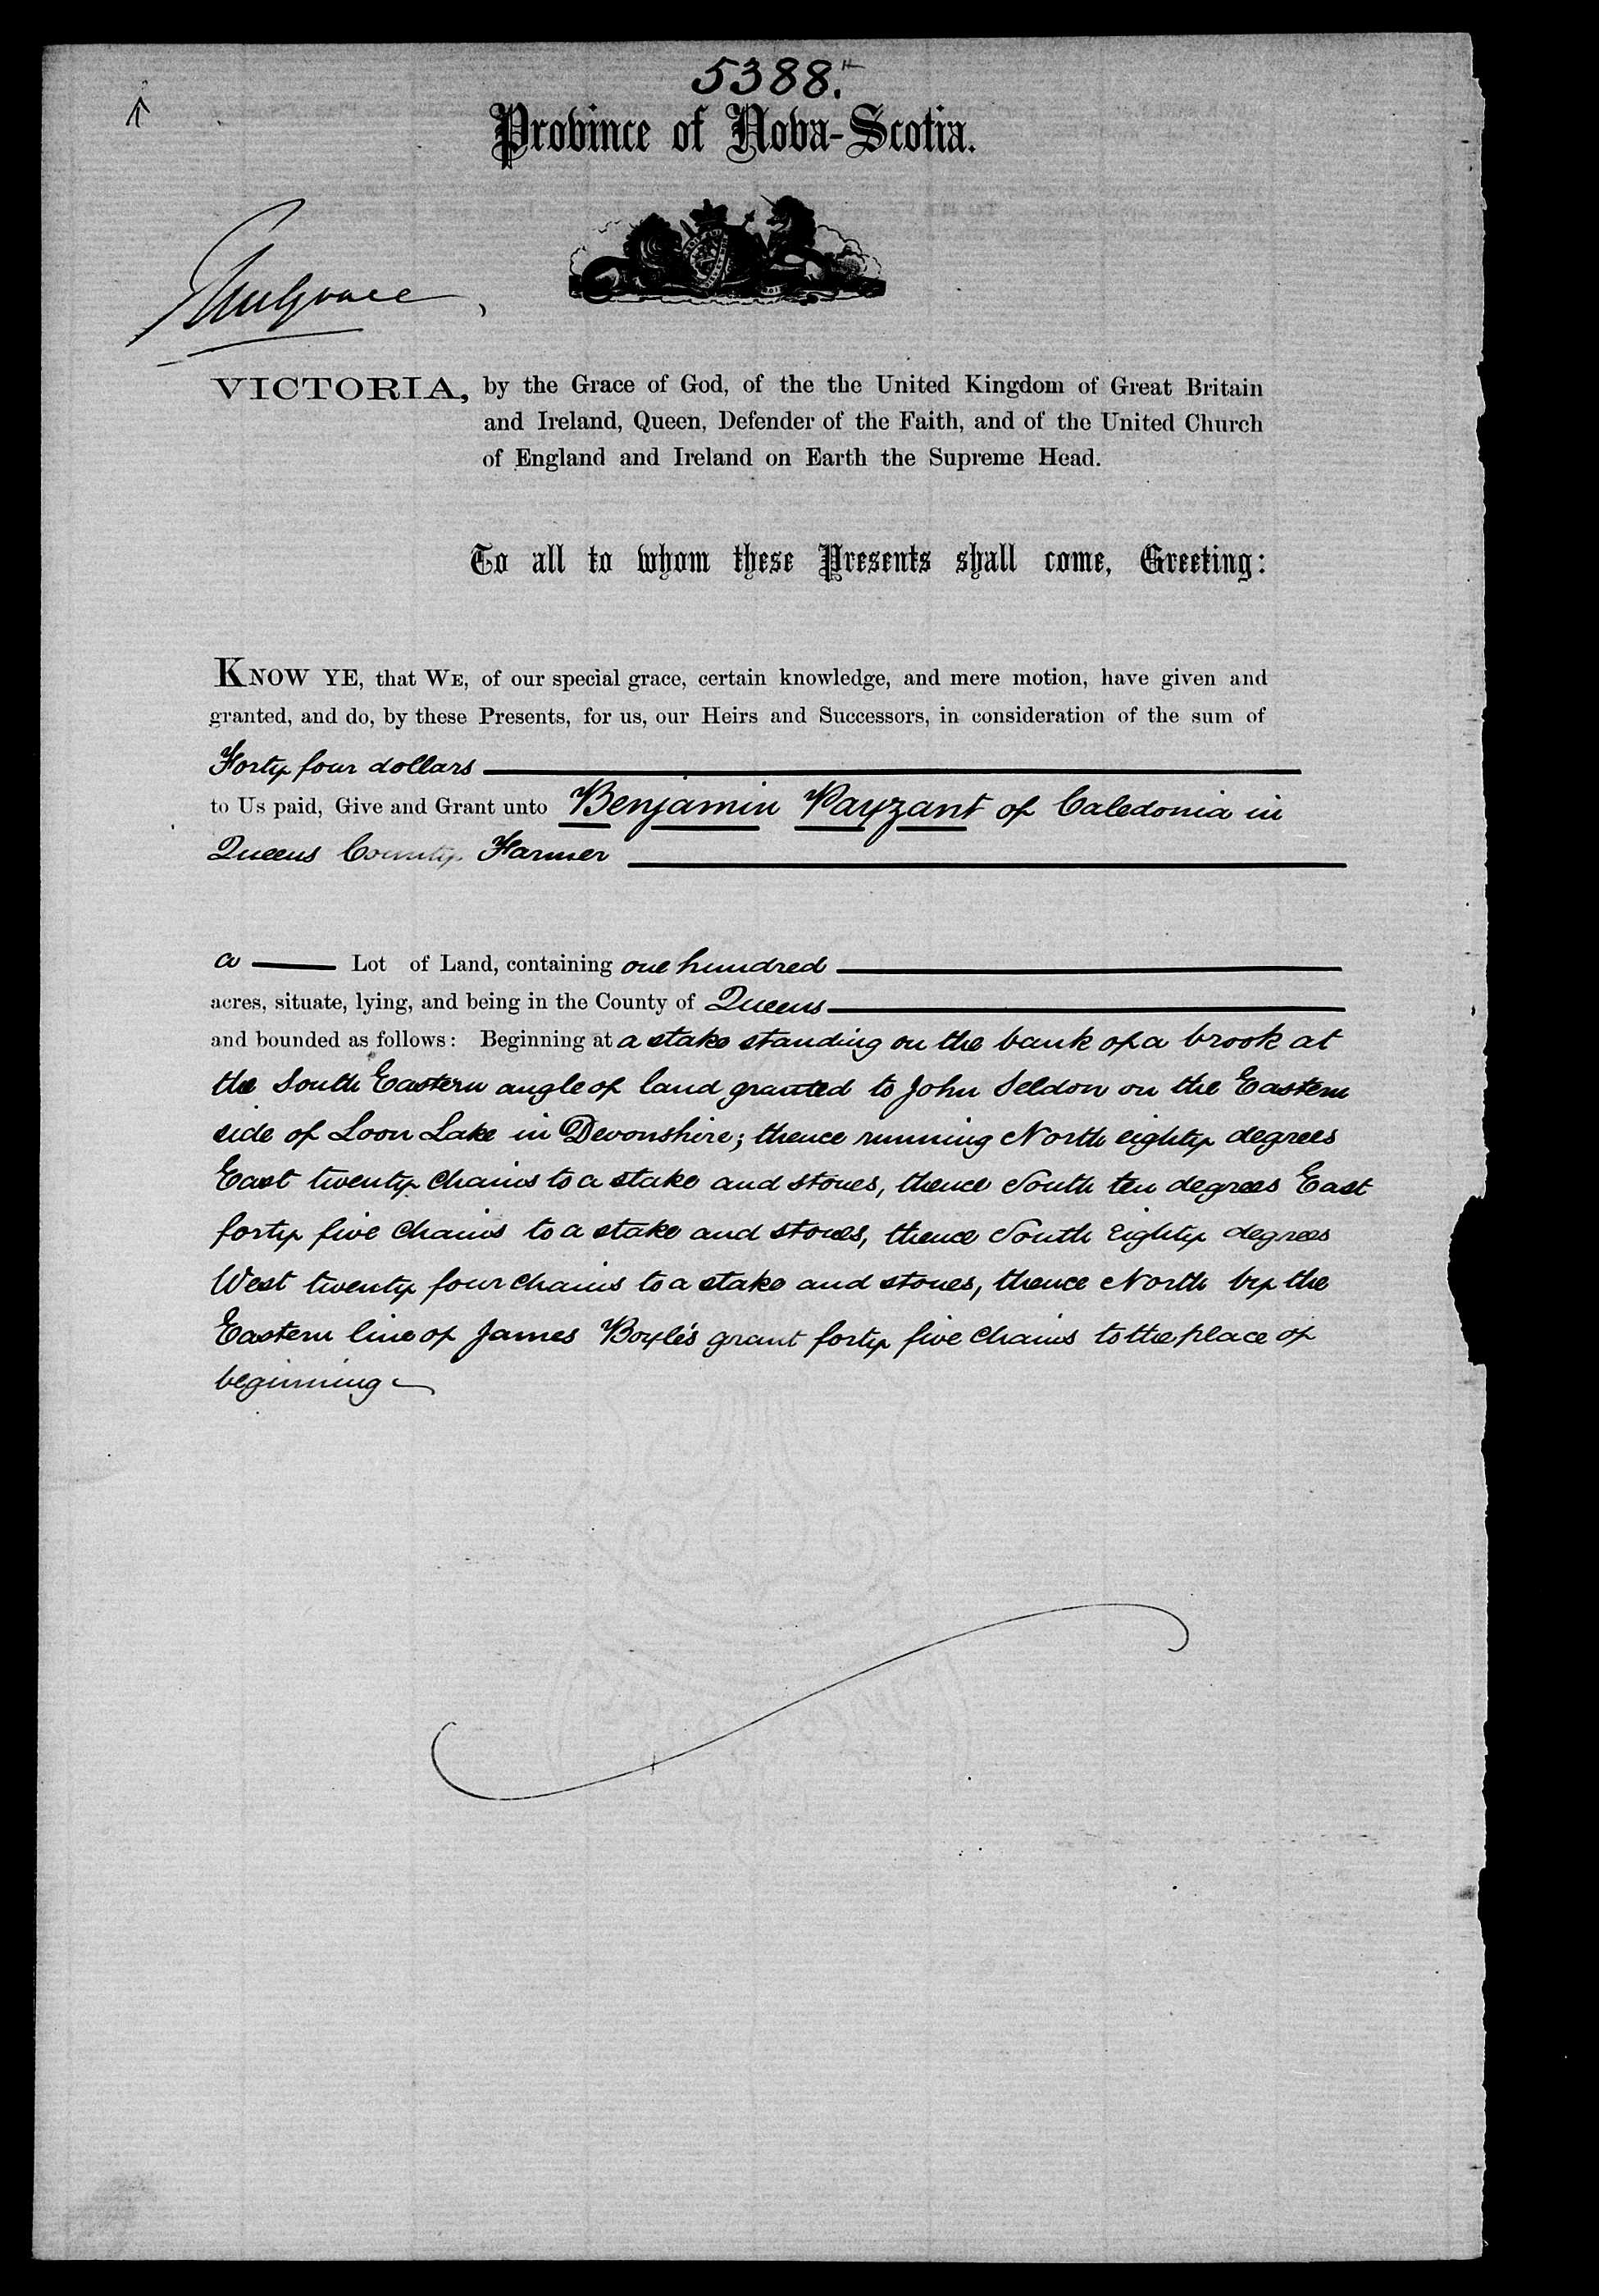 5388.
Province of Nova-Scotia.
Mulgrave
VICTORIA, by the Grace of God, of the the United Kingdom of Great Britain
and Ireland, Queen, Defender of the Faith, and of the United Church
of England and Ireland on Earth the Supreme Head.
To all to whom these Presents shall come, Greeting:
KNOW YE, that WE, of our special grace, certain knowledge, and mere motion, have given and
granted, and do, by these Presents, for us, our Heirs and Successors, in consideration of the sum of
Forty four dollars
to Us paid, Give and Grant unto Benjamin Payzant of Caledonia in
Queens County Farmer
a Lot of Land, containing one hundred
acres, situate, lying, and being in the County of Queens
and bounded as follows: Beginning at a stake standing on the bank of a brook at
the South Eastern angle of land granted to John Seldon on the Eastern
side of Loon Lake in Devonshire; thence running North eighty degrees
East twenty chains to a stake and stones, thence South ten degrees East
forty five chains to a stake and stones, thence South Eighty degrees
West twenty four chains to a stake and stones, thence North by the
Eastern line of James Boyle's grant forty five chains to the place of
beginning